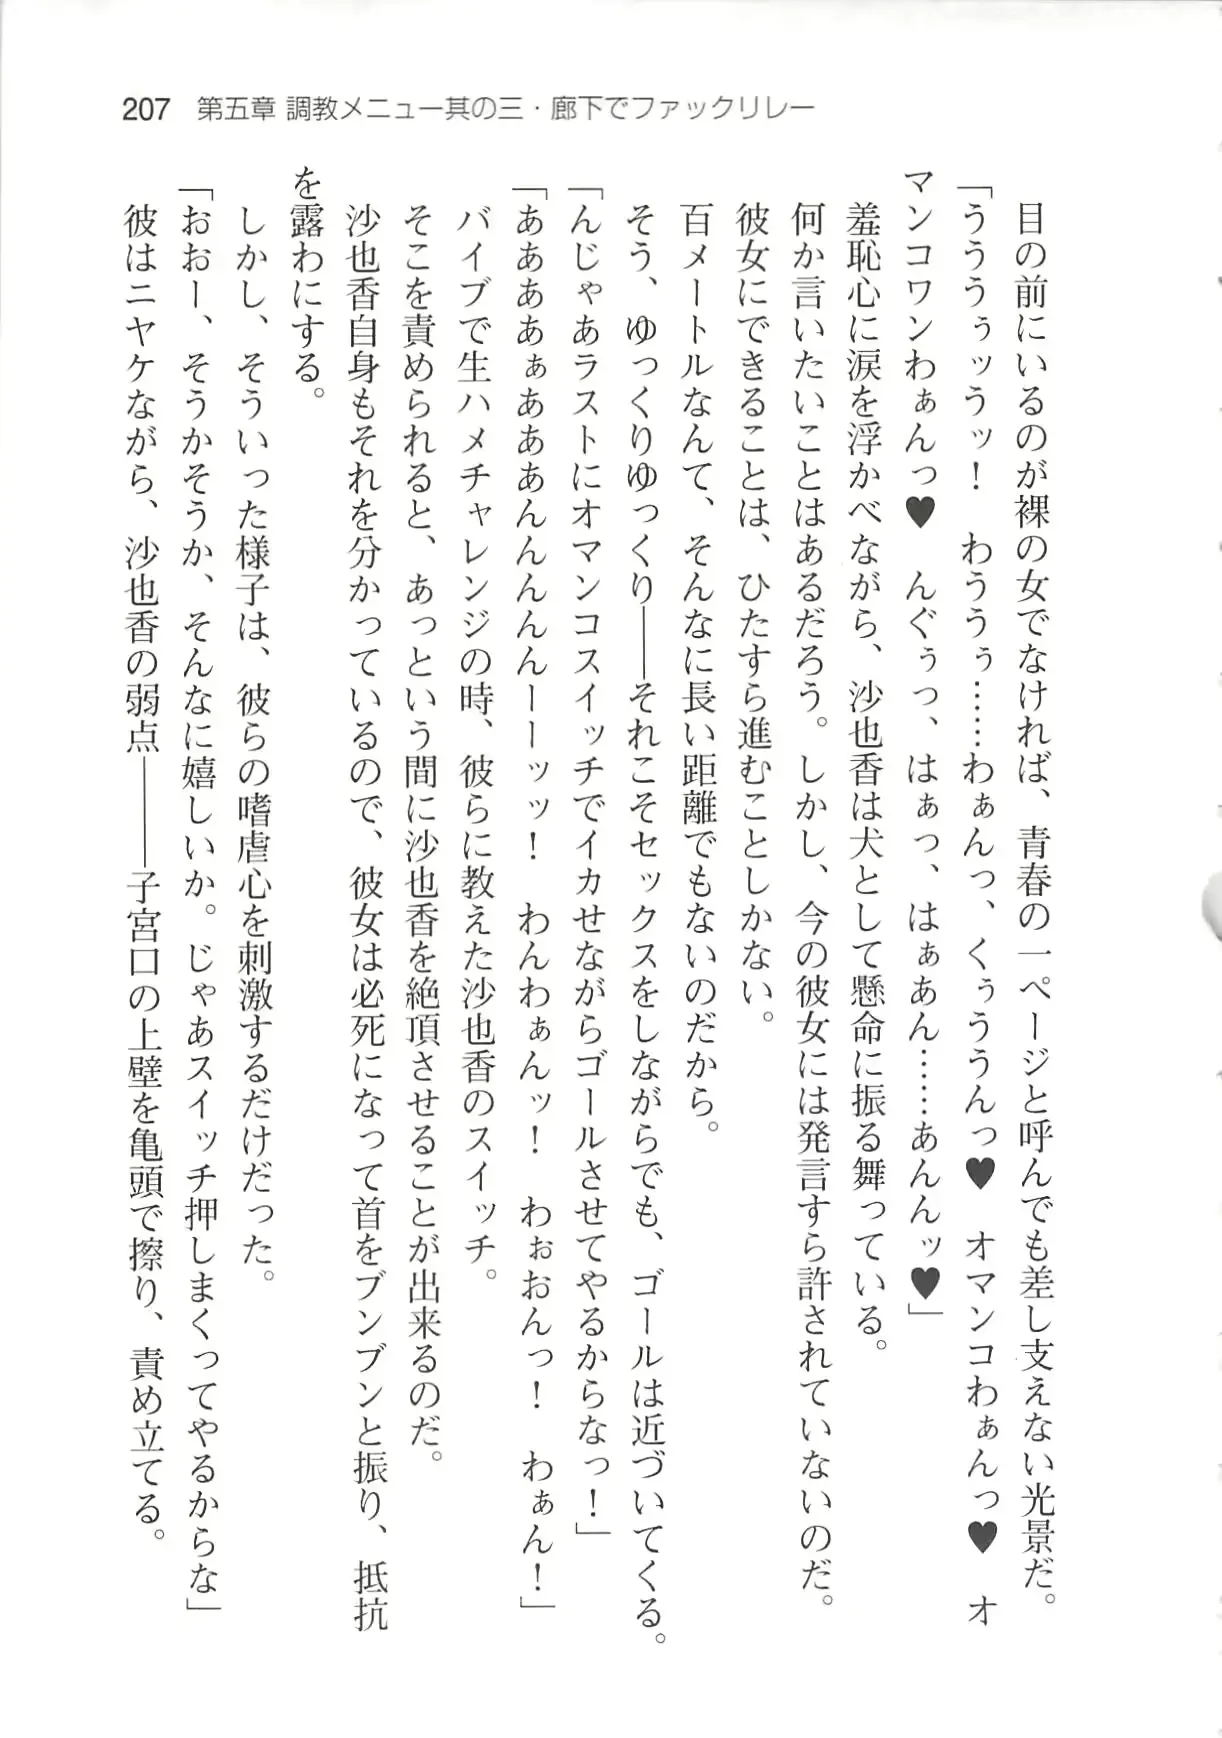 207 第五章 調教メニュー其の三・廊下でファックリレー
目の前にいるのが裸の女でなければ、青春の一ページと呼んでも差し支えない光景だ。
「うううぅッうッ！　わううぅ……わぁんっ、くぅううんっ♥　オマンコわぁんっ♥　オ
マンコワンわぁんっ♥　んぐぅっ、はぁっ、はぁあん……あんんッ♥」
羞恥心に涙を浮かべながら、沙也香は犬として懸命に振る舞っている。
何か言いたいことはあるだろう。しかし、今の彼女には発言すら許されていないのだ。
彼女にできることは、ひたすら進むことしかない。
百メートルなんて、そんなに長い距離でもないのだから。
そう、ゆっくりゆっくり――それこそセックスをしながらでも、ゴールは近づいてくる。
「んじゃあラストにオマンコスイッチでイカせながらゴールさせてやるからなっ！」
「ああああぁあああんんんんんーーッッ！　わんわぁんッ！　わぉおんっ！　わぁん！」
バイブで生ハメチャレンジの時、彼らに教えた沙也香のスイッチ。
そこを責められると、あっという間に沙也香を絶頂させることが出来るのだ。
沙也香自身もそれを分かっているので、彼女は必死になって首をブンブンと振り、抵抗
を露わにする。
しかし、そういった様子は、彼らの嗜虐心を刺激するだけだった。
「おおー、そうかそうか、そんなに嬉しいか。じゃあスイッチ押しまくってやるからな」
彼はニヤケながら、沙也香の弱点――子宮口の上壁を亀頭で擦り、責め立てる。